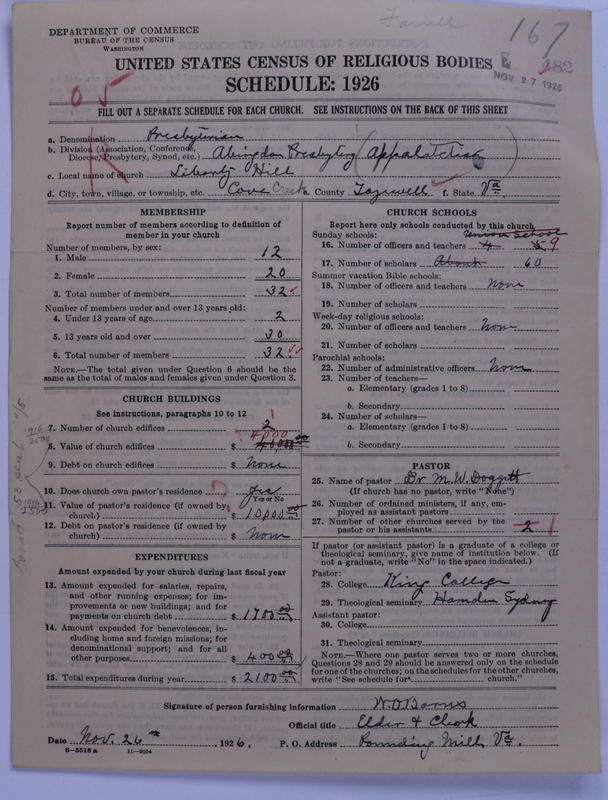 Farrell
167
DEPARTMENT OF COMMERCE
BUREAU OF THE CENSUS
WASHINGTON
UNITED STATES CENSUS OF RELIGIOUS BODIES
SCHEDULE: 1926
NOV 27 1926
0 5
FILL OUT A SEPARATE SCHEDULE FOR EACH CHURCH. SEE INSTRUCTIONS ON THE BACK OF THIS SHEET
a. Denomination Presbyterian
b. Division (Association, Conference, Diocese, Presbytery, Synod, etc.) Abingdon Presbytery (Appalachia)
c. Local name of church Liberty Hill
d. City, town, village, or township, etc. Cove Creek e. County Tazewell f. State Va.
MEMBERSHIP
Report number of members according to definition of
member in your church
Number of members, by sex:
1. Male 12
2. Female 20
3. Total number of members 32
Number of members under and over 13 years old:
4. Under 13 years of age 2
5. 13 years old and over 30
6. Total number of members 32
NOTE.—The total given under Question 6 should be
same as the total of males and females given under Question 3.
CHURCH BUILDINGS
See instructions, paragraphs 10 to 12
7. Number of church edifices 2 1
4000
8. Value of church edifices $
9. Debt on church edifices $ None
10. Does church own pastor's residence yes
Yes or No
11. Value of pastor's residence (if owned by
church) $ 10000 00
12. Debt on pastor's residence (if owned by
church) $ None
EXPENDITURES
Amount expended by your church during last fiscal year
13. Amount expended for salaries, repairs,
and other running expenses; for im-
provements or new buildings; and for
payments on church debt $ 1700 00
14. Amount expended for benevolences, in-
cluding home and foreign missions; for
denominational support; and for all
other purposes $ 400 00
15. Total expenditures during year $ 2100 00
CHURCH SCHOOLS
Report here only schools conducted by this church
Sunday schools: Union School
16. Number of officers and teachers 4 5 9
17. Number of scholars About 60
Summer vacation Bible schools:
18. Number of officers and teachers None
19. Number of scholars
Week-day religious schools:
20. Number of officers and teachers None
21. Number of scholars
Parochial schools:
22. Number of administrative officers None
23. Number of teachers—
a. Elementary (grades 1 to 8)
b. Secondary
24. Number of scholars—
a. Elementary (grades 1 to 8)
b. Secondary
PASTOR
25. Name of pastor Dr M. W. Doggett
(If church has no pastor, write "None")
26. Number of ordained ministers, if any, em-
ployed as assistant pastors
27. Number of other churches served by the
pastor or his assistants 2 1
If pastor (or assistant pastor) is a graduate of a college or
theological seminary, give name of institution below. (If
not a graduate, write "No" in the space indicated.)
Pastor:
28. College King College
29. Theological seminary Hamden Sydney
Assistant pastor:
30. College
31. Theological seminary
NOTE.—Where one pastor serves two or more churches,
Questions 28 and 29 should be answered only on the schedule
for one of the churches; on the schedules for the other churches,
write "See schedule for church."
Signature of person furnishing information W. O. Barns
Official title Elder & Clerk
Date Nov. 26th, 1926. P. O. Address Pounding Mill, Va.
8-5518 a 11-9054